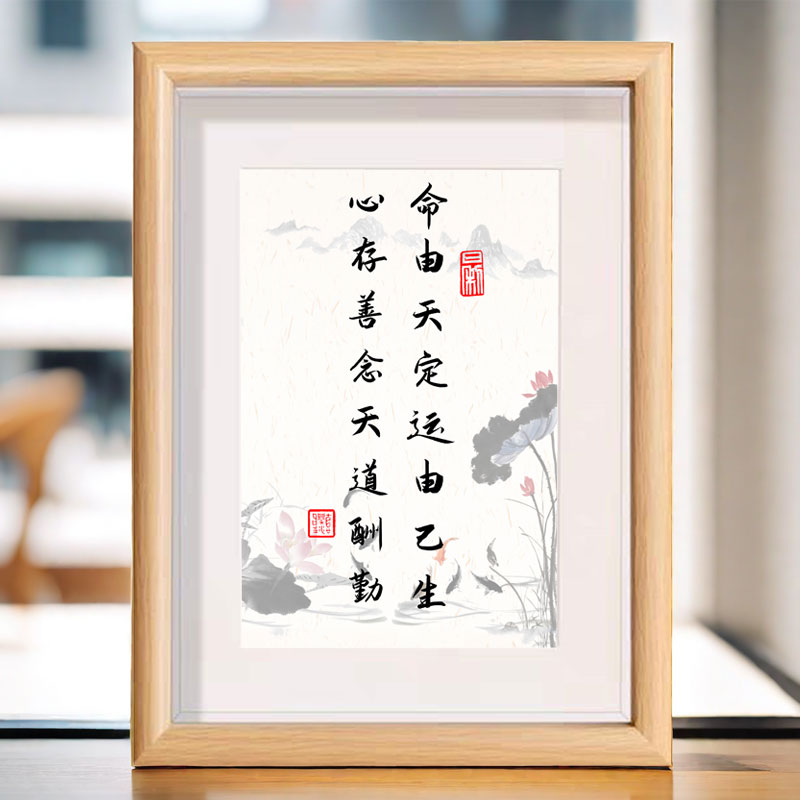 命由天定运由己生
心存善念天道酬勤